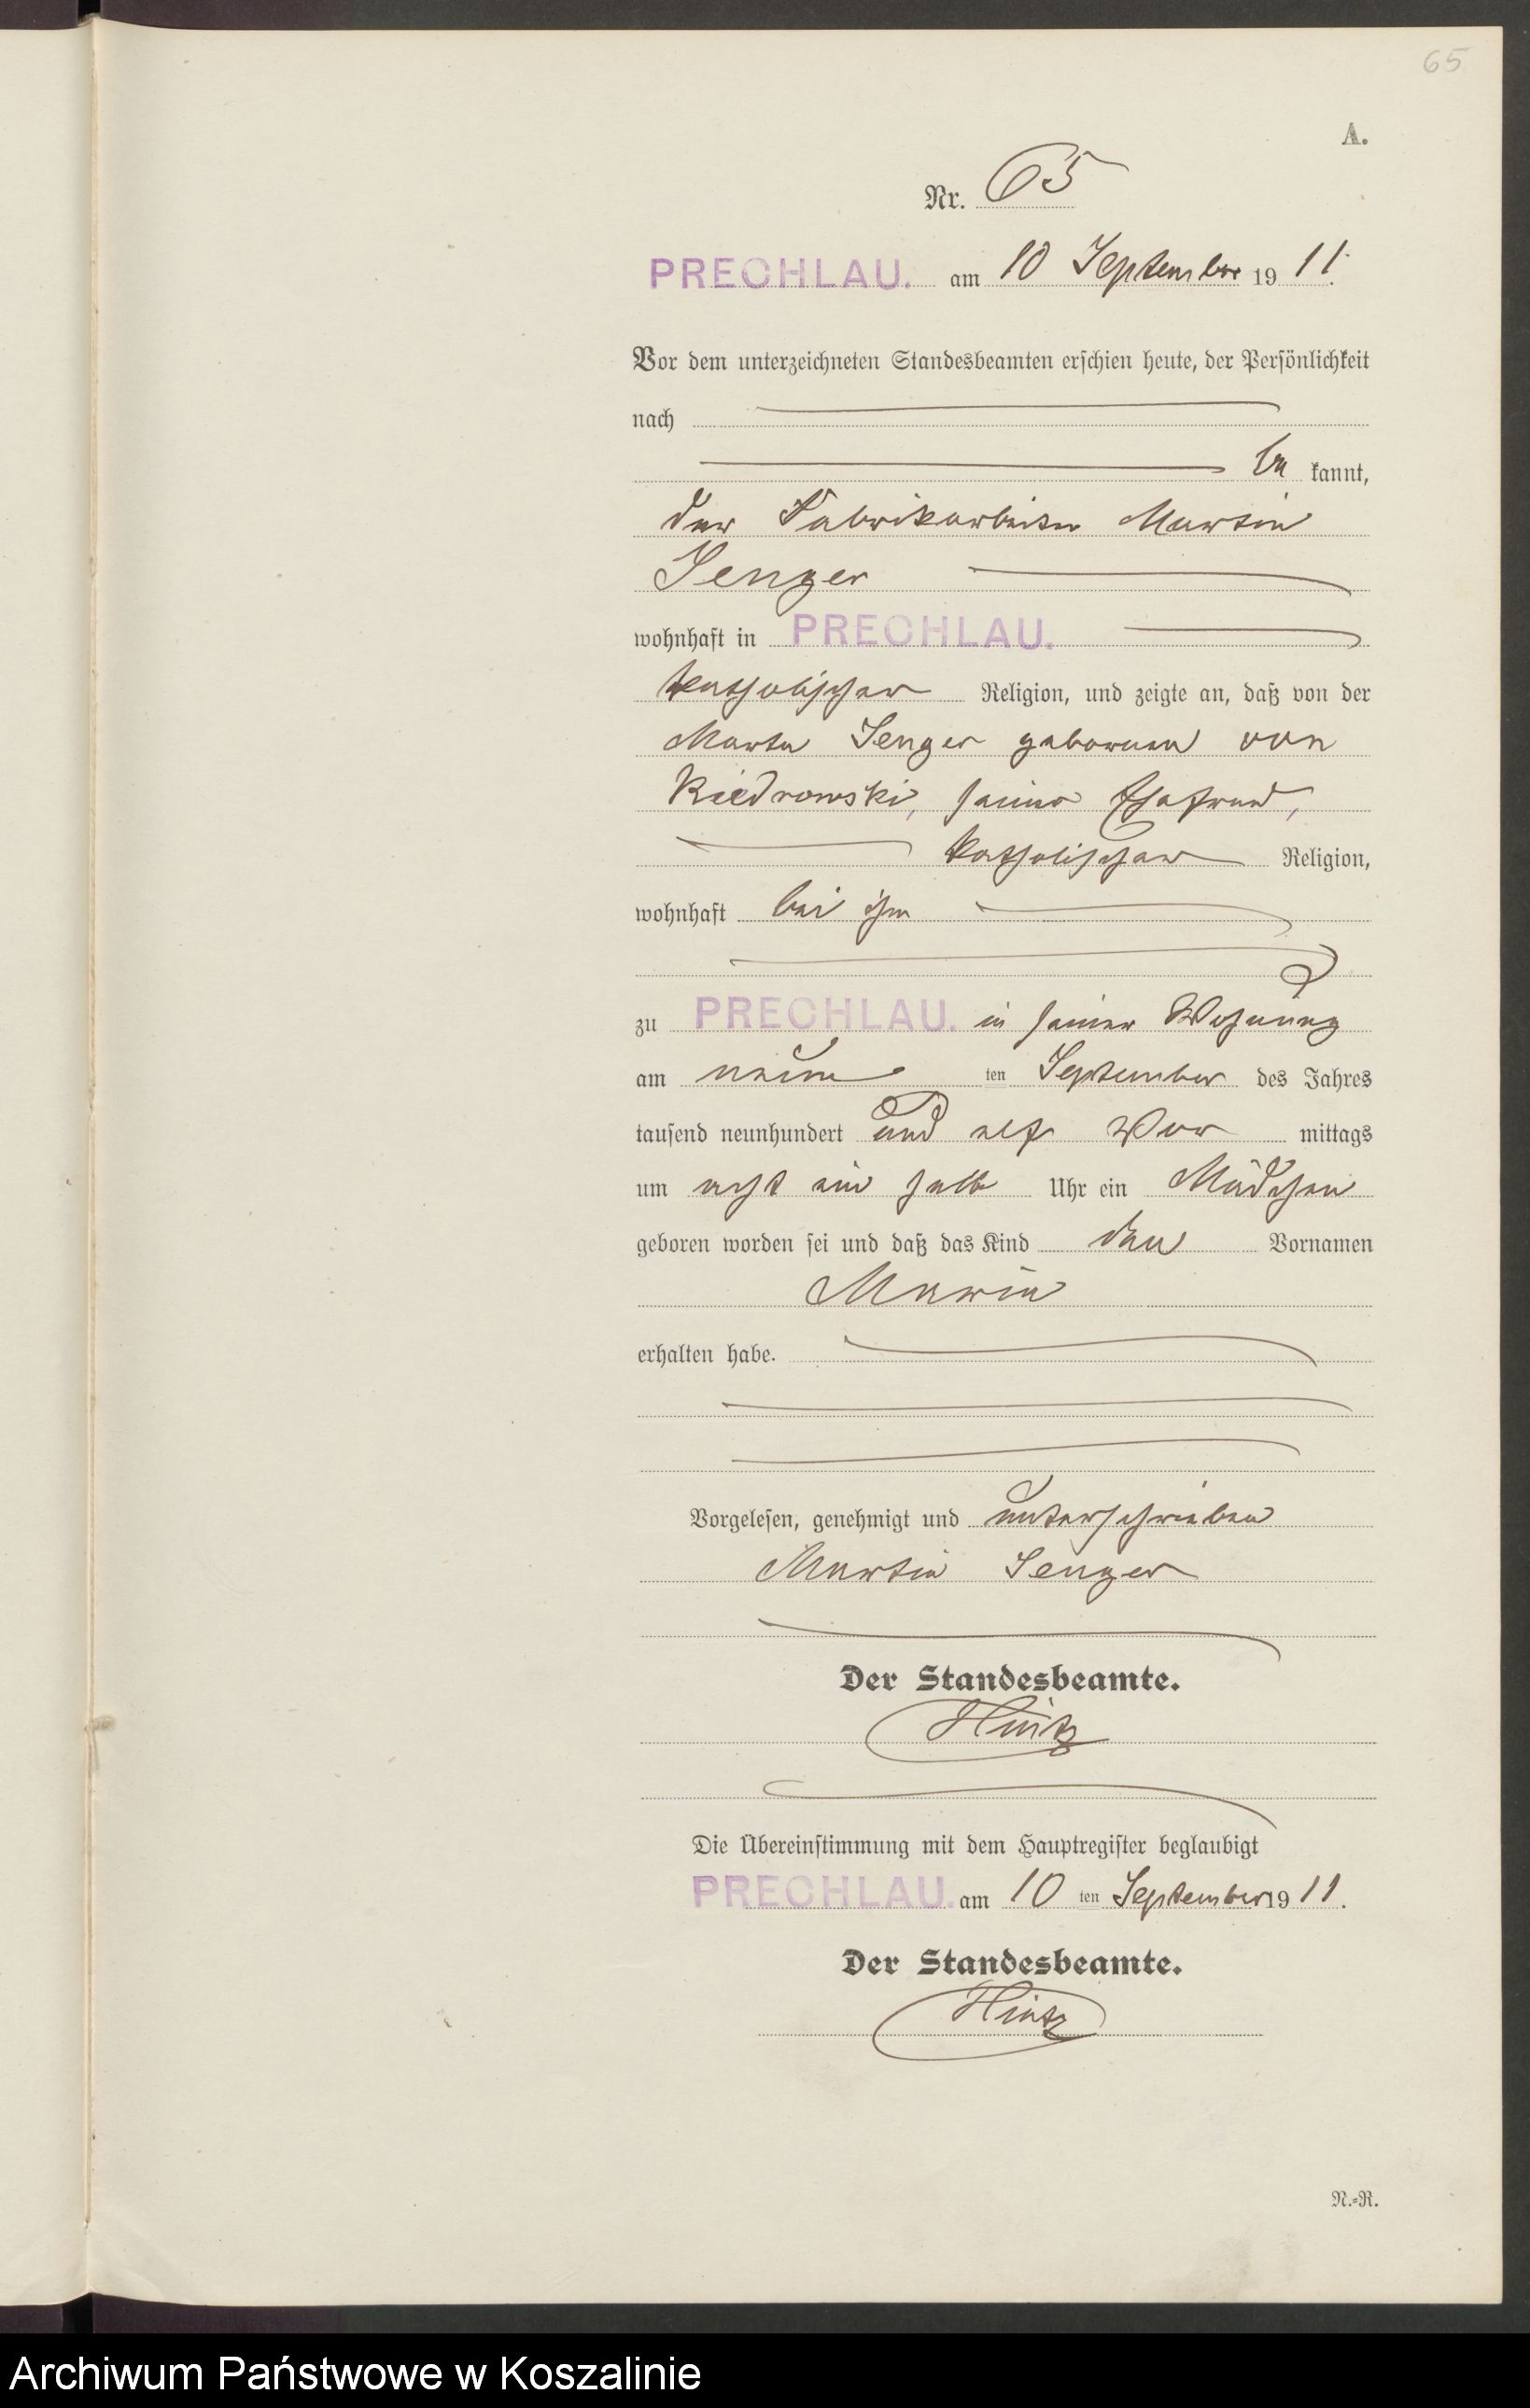 65
A.
Nr. 65
PRECHLAU. am 10 September 1911.
Vor dem unterzeichneten Standesbeamten erschien heute, der Persönlichkeit
nach
be kannt,
der Fabrikarbeiter Martin
Senger
wohnhaft in PRECHLAU.
katholischer Religion, und zeigte an, daß von der
Marta Senger geborenen von
Kiedrowski, seiner Ehefrau,
katholischer Religion,
wohnhaft bei ihm
zu PRECHLAU. in seiner Wohnung
am neun ten September des Jahres
tausend neunhundert und elf Vor mittags
um acht ein halb Uhr ein Mädchen
geboren worden sei und daß das Kind den Vornamen
Maria
erhalten habe.
Vorgelesen, genehmigt und unterschrieben
Martin Senger
Der Standesbeamte.
Hintz
Die Übereinstimmung mit dem Hauptregister beglaubigt
PRECHLAU. am 10 ten September 1911.
Der Standesbeamte.
Hintz
N.-R.
Archiwum Państwowe w Koszalinie